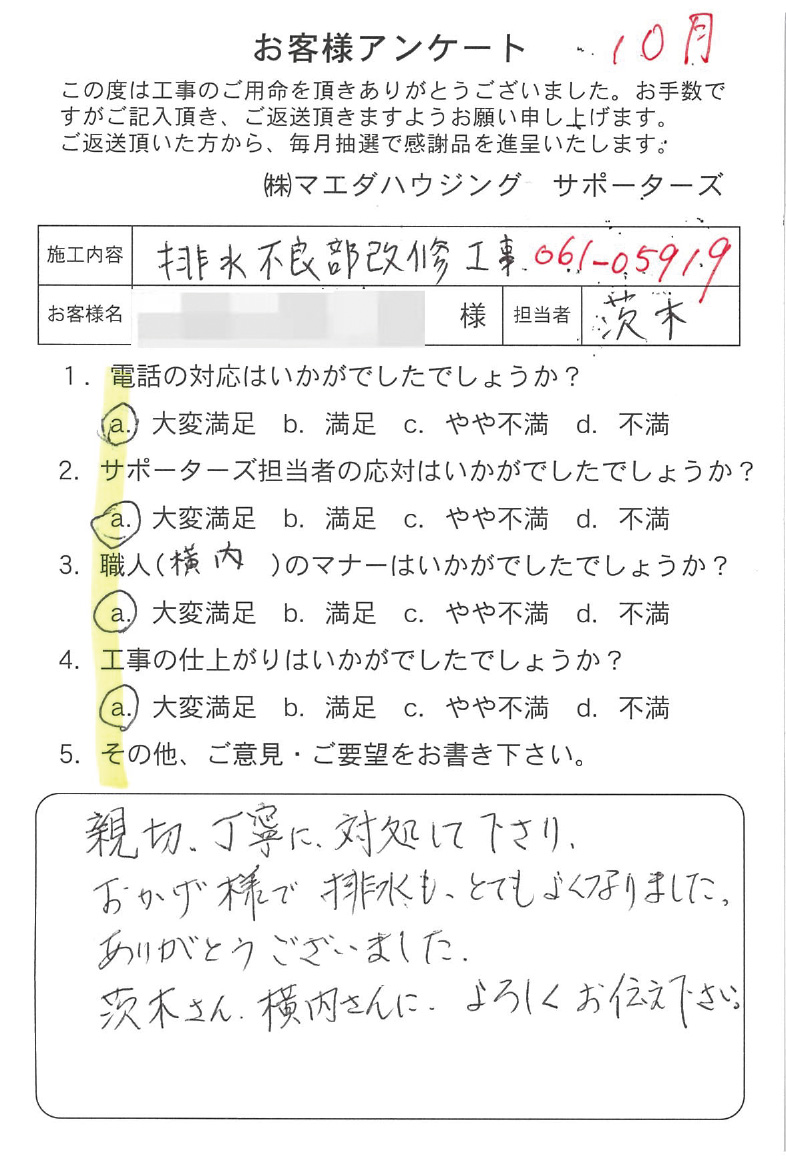 お客様アンケート 10月
この度は工事のご用命を頂きありがとうございました。お手数で
すがご記入頂き、ご返送頂きますようお願い申し上げます。
ご返送頂いた方から、毎月抽選で感謝品を進呈いたします。
㈱マエダハウジング サポーターズ
施工内容 排水不良部改修工事 061-05919
お客様名 様 担当者 茨木
1. 電話の対応はいかがでしたでしょうか?
a. 大変満足 b. 満足 c. やや不満 d. 不満
2. サポーターズ担当者の応対はいかがでしたでしょうか?
a. 大変満足 b. 満足 c. やや不満 d. 不満
3. 職人(横内 )のマナーはいかがでしたでしょうか?
a. 大変満足 b. 満足 c. やや不満 d. 不満
4. 工事の仕上がりはいかがでしたでしょうか?
a. 大変満足 b. 満足 c. やや不満 d. 不満
5. その他、ご意見・ご要望をお書き下さい。
親切、丁寧に、対処して下さり、
おかげ様で 排水も、とてもよくなりました。
ありがとうございました.
茨木さん、横内さんに、よろしくお伝え下さい。